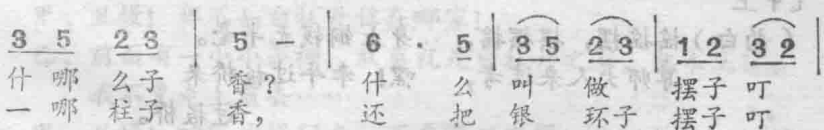 3 5 2 3 | 5 - | 6 · 5 | 3 5 2 3 | 1 2 3 2 |
什 哪 么子 香? 什 么 叫 做 摆子 叮
一 哪 柱子 香, 还 把 银 环子 摆子 叮